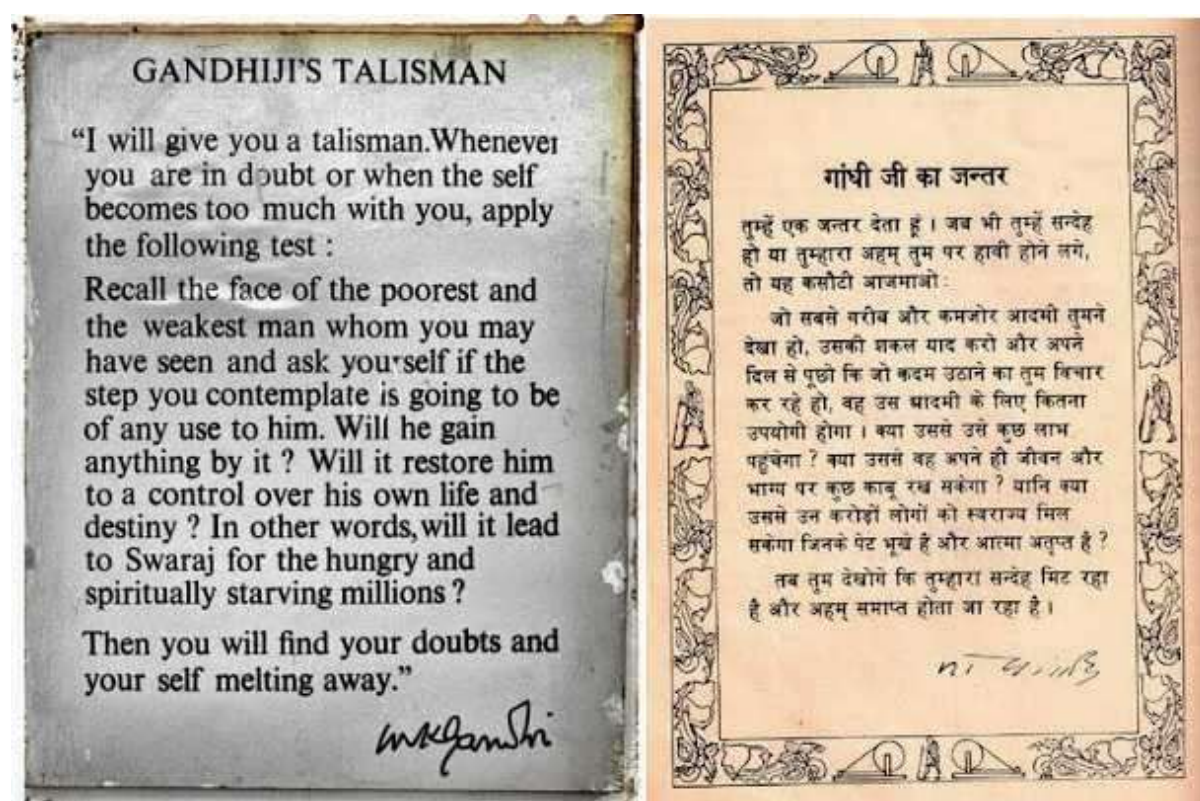 GANDHIJI'S TALISMAN
“I will give you a talisman.Whenever
you are in doubt or when the self
becomes too much with you, apply
the following test :
Recall the face of the poorest and
the weakest man whom you may
have seen and ask yourself if the
step you contemplate is going to be
of any use to him. Will he gain
anything by it ? Will it restore him
to a control over his own life and
destiny ? In other words, will it lead
to Swaraj for the hungry and
spiritually starving millions ?
Then you will find your doubts and
your self melting away.”
mkgandhi
गांधी जी का जन्तर
तुम्हें एक जन्तर देता हूं । जब भी तुम्हें सन्देह
हो या तुम्हारा अहम् तुम पर हावी होने लगे,
तो यह कसौटी आजमाओ :
जो सबसे गरीब और कमजोर आदमी तुमने
देखा हो, उसकी शकल याद करो और अपने
दिल से पूछो कि जो कदम उठाने का तुम विचार
कर रहे हो, वह उस आदमी के लिए कितना
उपयोगी होगा । क्या उससे उसे कुछ लाभ
पहुंचेगा ? क्या उससे वह अपने ही जीवन और
भाग्य पर कुछ काबू रख सकेगा ? यानि क्या
उससे उन करोड़ों लोगों को स्वराज्य मिल
सकेगा जिनके पेट भूखे है और आत्मा अतृप्त है ?
तब तुम देखोगे कि तुम्हारा सन्देह मिट रहा
है और अहम् समाप्त होता जा रहा है ।